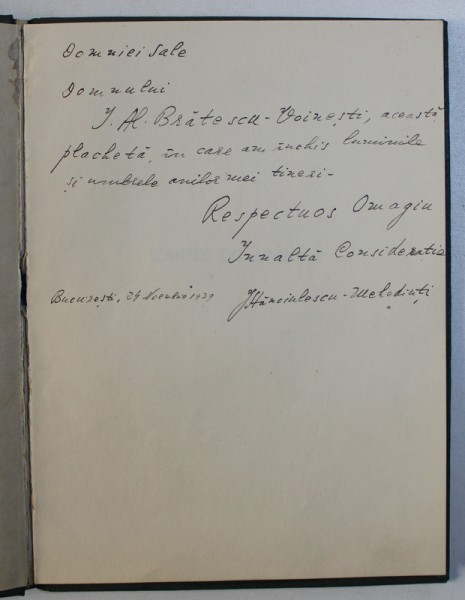 Domniei Sale
Domnului
I. Al. Brătescu-Voinești, această
plachetă, în care am închis luminile
și umbrele anilor mei tineri-
Respectuos Omagiu
Innaltă Considerația
București, 24 1929